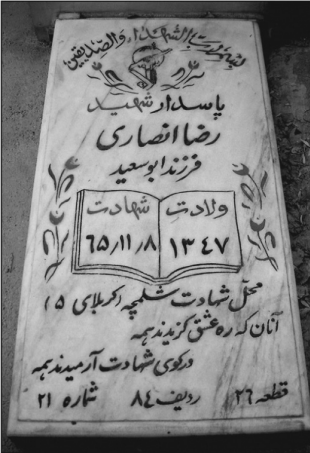 بسم رب الشهداء والصدیقین
پاسدار شهید
رضا انصاری
فرزند ابوسعید
ولادت شهادت
۱۳۴۷ ۶۵/۱۱/۸
محل شهادت شلمچه (کربلای ۵)
آنان که ره عشق گزیدند همه
در کوی شهادت آرمیدند همه
قطعه ۲۶ ردیف ۸۴ شماره ۲۱